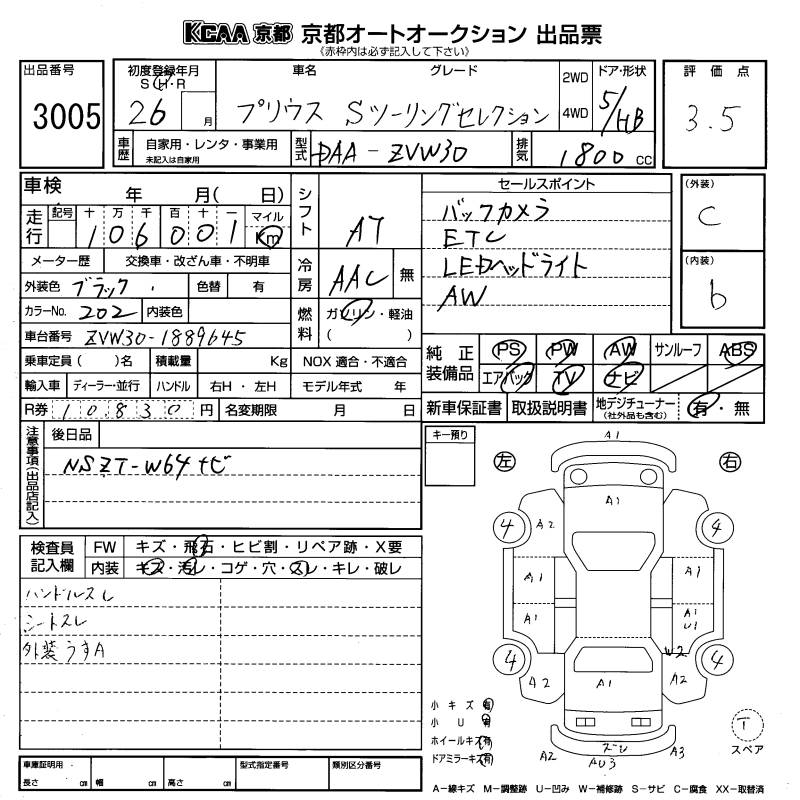 KCAA 京都 京都オートオークション 出品票
《赤枠内は必ず記入して下さい》
出品番号
3005
初度登録年月
S・H・R
26 月
車名 グレード
プリウス Sツーリングセレクション
2WD
4WD
ドア・形状
5/HB
評価点
3.5
車歴
自家用・レンタ・事業用
未記入は自家用
型式
DAA-ZVW30
排気
1800 CC
車検 年 月( 日)
走行
記号 十 万 千 百 十 一 マイル
106001 Km
メーター歴 交換車・改ざん車・不明車
外装色 ブラック 色替 有
カラーNo. 202 内装色
車台番号 ZVW30-1889645
乗車定員( )名 積載量 Kg
輸入車 ディーラー・並行 ハンドル 右H・左H
R券 10830円 名変期限 月 日
シフト
AT
冷房
AAC 無
燃料
ガソリン・軽油
( )
NOX 適合・不適合
モデル年式 年
セールスポイント
バックカメラ
ETC
LEDヘッドライト
AW
(外装)
C
(内装)
b
純正装備品
PS PW AW サンルーフ ABS
エアバック TV ナビ
新車保証書 取扱説明書 地デジチューナー
(社外品も含む)
有・無
注意事項(出品店記入)
後日品
NSZT-W64ナビ
検査員記入欄
FW キズ・飛石・ヒビ割・リペア跡・X要
内装 キズ・汚レ・コゲ・穴・スレ・キレ・破レ
ハンドルスレ
シートスレ
外装うすA
キー預り
左
右
A1
A1
4 A2 4
A1 A1
A1 A1
U1
W2
4 A2 A1 A2 4
小キズ 有
小U 有
ホイールキズ 有
ドアミラーキズ 有
A2 AU3 A3
T
スペア
車庫証明用
長さ cm 幅 cm 高さ cm
型式指定番号
類別区分番号
A-線キズ M-調整跡 U-凹み W-補修跡 S-サビ C-腐食 XX-取替済